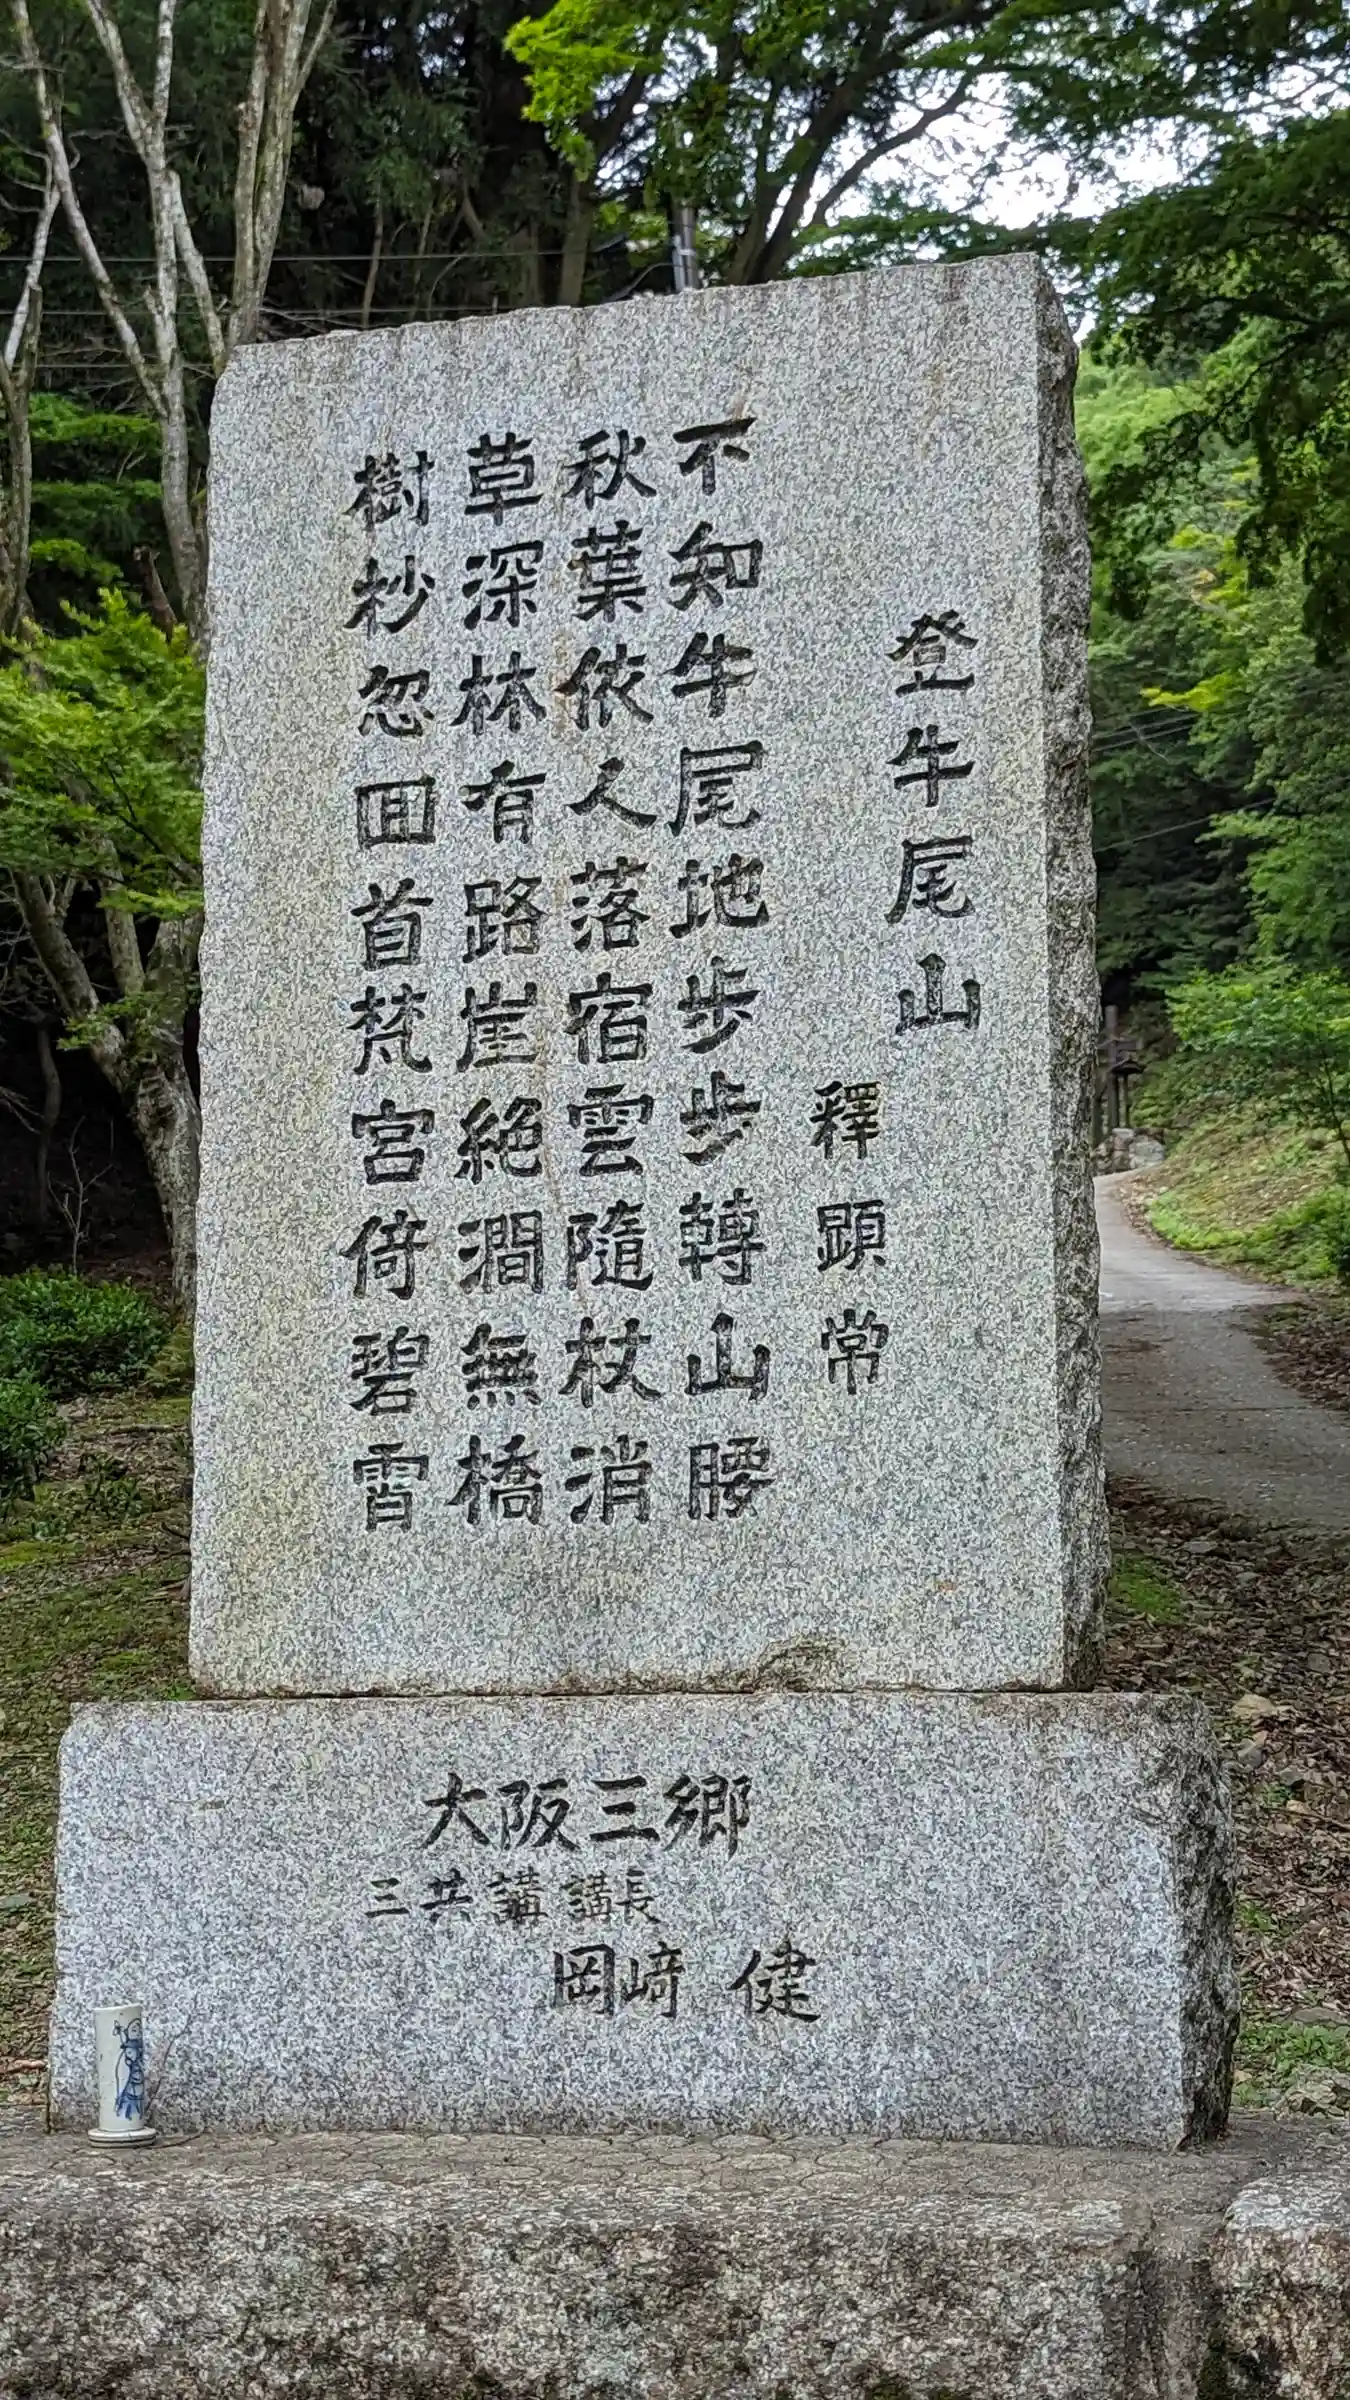 登牛尾山
釋顕常
不知牛尾地步步轉山腰
秋葉依人落宿雲隨杖消
草深林有路崖絶澗無橋
樹杪忽囬首梵宮倚碧霄
大阪三郷
三共講 講長
岡﨑 健